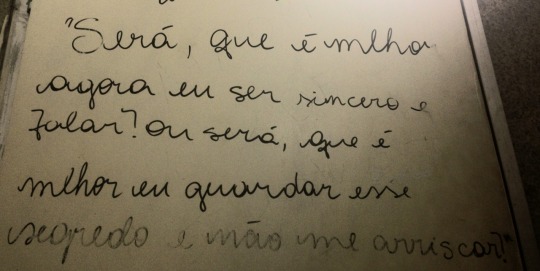 "Será, que é mlhor
agora eu ser sincero e
falar? Ou será, que é
mlhor eu guardar esse
segredo e não me arriscar?"